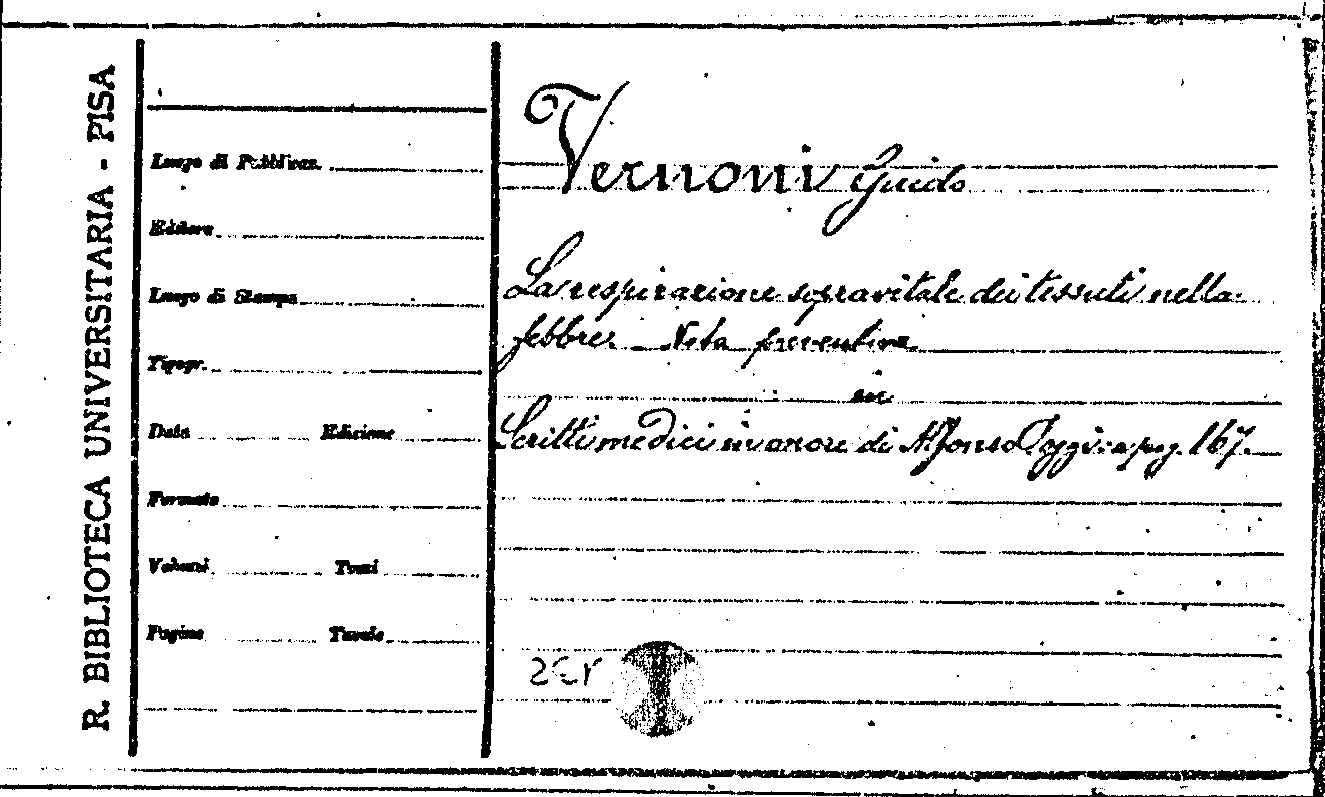 R. BIBLIOTECA UNIVERSITARIA - PISA
Luogo di Pubblicaz.
Editore
Luogo di Stampa
Tipogr.
Data Edizione
Formato
Volumi Tomi
Pagine Tavole
Vernoni Guido
La respirazione sopravitale dei tessuti nella
febbre. Nota preventiva
in
Scritti medici in onore di Alfonso Poggi: a pag. 167.